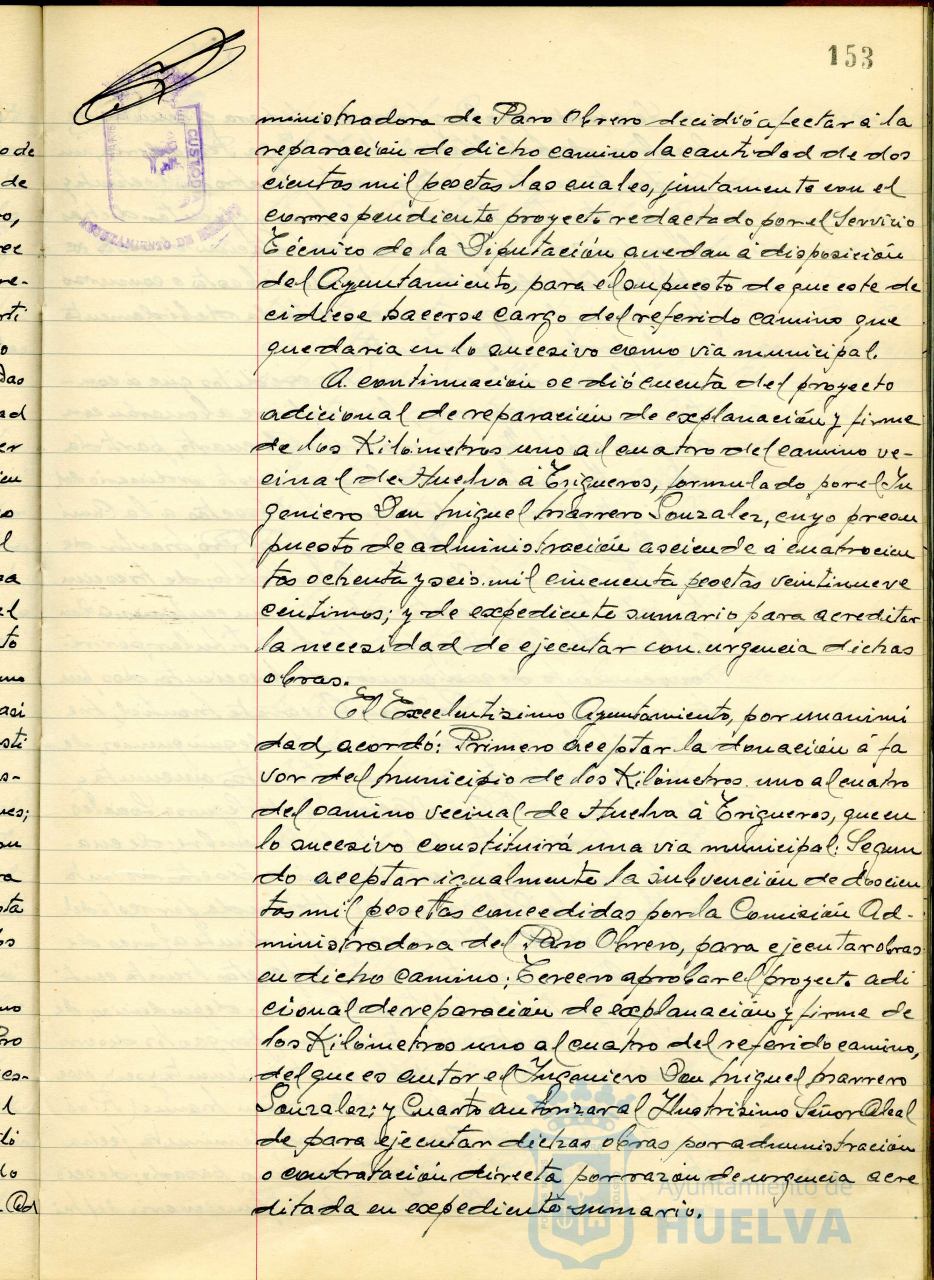 153
ministradora de Paro Obrero decidió afectar á la
reparación de dicho camino la cantidad de dos
cientas mil pesetas las cuales, juntamente con el
correspondiente proyecto redactado por el Servicio
Técnico de la Diputación quedan á disposición
del Ayuntamiento, para el supuesto de que este de
cidiese hacerse cargo del referido camino que
quedaria en lo sucesivo como via municipal.
A continuación se dió cuenta del proyecto
adicional de reparación de explanación y firme
de los Kilómetros uno al cuatro del camino ve-
cinal de Huelva á Trigueros, formulado por el In
geniero Don Miguel Marrero Gonzalez, cuyo presu
puesto de administración asciende á cuatrocien
tas ochenta y seis mil cincuenta pesetas veintinueve
céntimos; y de expediente sumario para acreditar
la necesidad de ejecutar con urgencia dichas
obras.
El Excelentisimo Ayuntamiento, por unanimi
dad, acordó: Primero aceptar la donación á fa
vor del Municipio de los Kilómetros uno al cuatro
del camino vecinal de Huelva á Trigueros, que en
lo sucesivo constituirá una via municipal: Segun
do aceptar igualmente la subvención de doscien
tas mil pesetas concedidas por la Comisión Ad-
ministradora del Paro Obrero, para ejecutar obras
en dicho camino; Tercero aprobar el proyecto adi
cional de reparación de explanación y firme de
los Kilómetros uno al cuatro del referido camino,
del que es autor el Ingeniero Don Miguel Marrero
Gonzalez; y Cuarto autorizar al Ilustrisimo Señor Alcal
de para ejecutar dichas obras por administración
o contratación directa por razón de urgencia acre
ditada en expediente sumario.
Ayuntamiento de
HUELVA